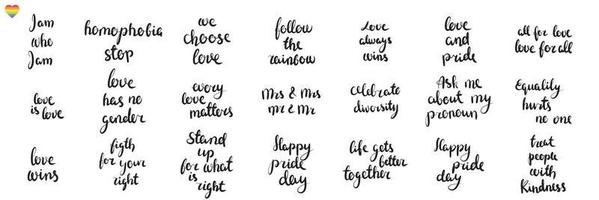 I am
who
I am
homophobia
stop
we
choose
love
follow
the
rainbow
love
always
wins
love
and
pride
all for love
love for all
love
is love
love
has no
gender
every
love
matters
Mrs & Mrs
Mr & Mr
celebrate
diversity
Ask me
about my
pronoun
Equality
hurts
no one
love
wins
figth
for your
right
Stand
up
for what
is
right
Happy
pride
day
life gets
better
together
Happy
pride
day
treat
people
with
Kindness